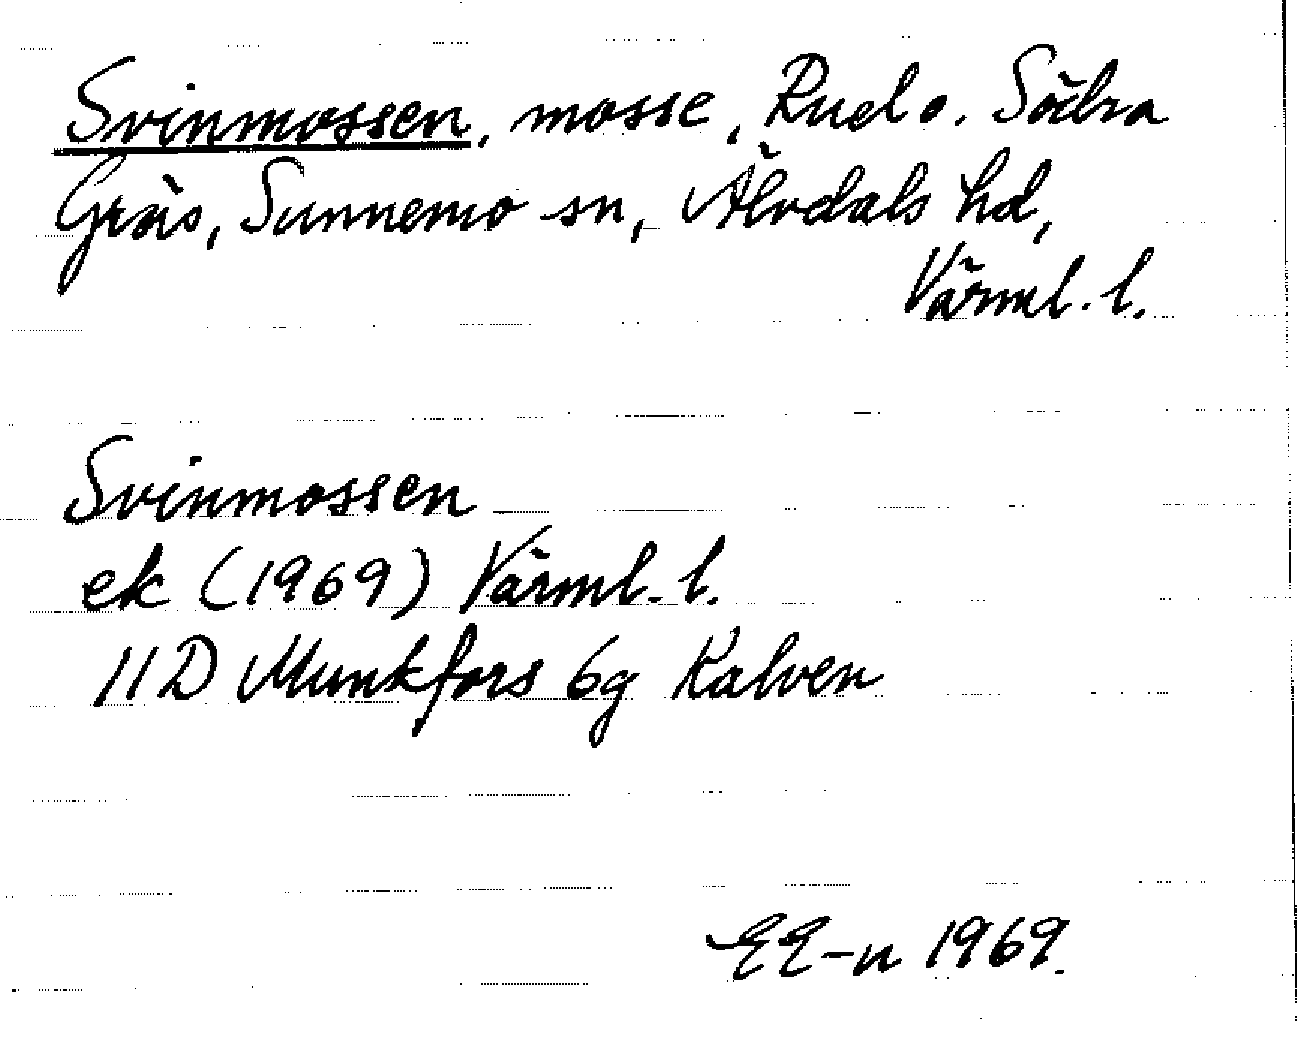 Svinmossen, mosse, Rud o. Södra
Gräs, Sunnemo sn, Älvdals hd,
Värml. l.
Svinmossen
ek (1969) Värml. l.
11D Munkfors 6g Kalven
EE-n 1969.